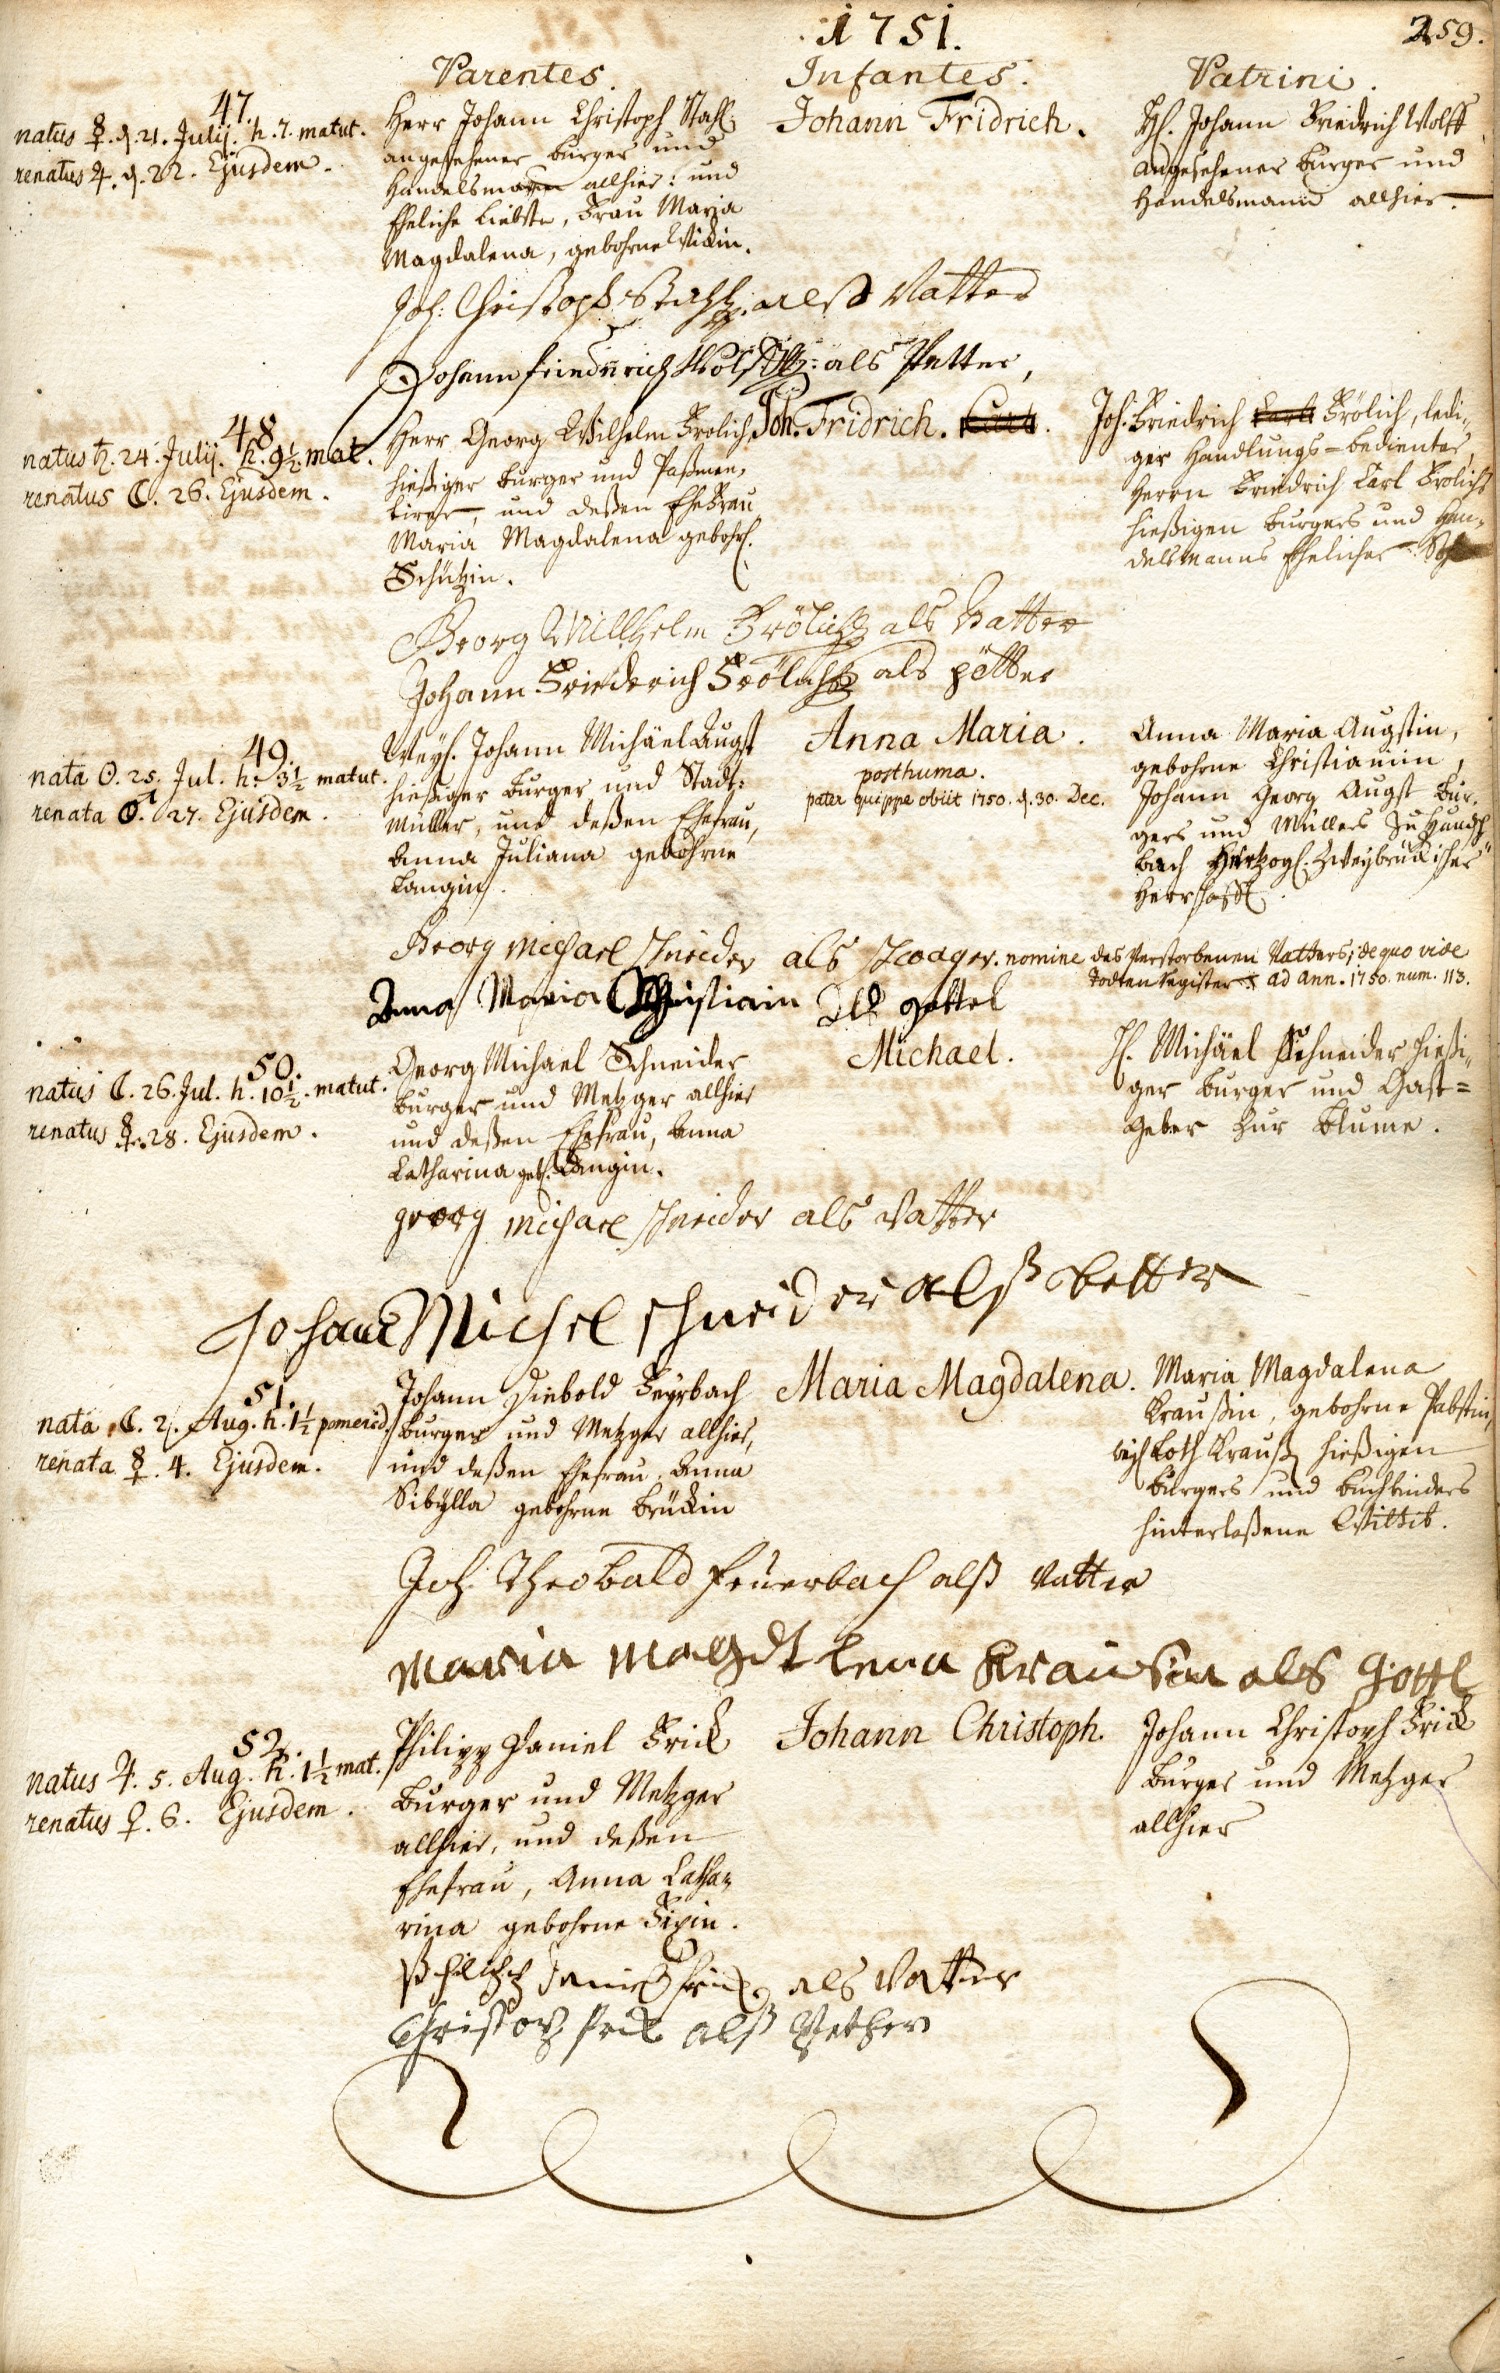 1751.
259.
Parentes.
Infantes.
Patrini.
47.
natus ☿. d. 21. Julij. h. 7. matut.
renatus ♃. d. 22. Ejusdem.
Herr Johann Christoph Stahl,
angesehener burger und
Handelsmann allhier: und
Eheliche Liebste, Frau Maria
Magdalena, gebohrne
Johann Fridrich.
H. Johann Friedrich Wolff
angesehener burger und
Handelsmann allhier.
Joh: Christoph Stahl als Vatter
Johann friedrich Wolff als Petter,
48.
natus ♄. 24. Julij. h. 9½. mat.
renatus ☾. 26. Ejusdem.
Herr Georg Wilhelm Frölich
hießiger burger und Paßmen-
tirer, und deßen EheFrau
Maria Magdalena gebohr.
Schützin.
Joh. Fridrich. Carl.
Joh. Friedrich Carl Frölich, ledi-
ger Handlungs-bedienter,
Herrn Friedrich Carl Frölichs
hießigen burgers und Han-
delsmanns Ehelicher Sohn
Georg Willhelm Frölich als Vatter
Johann Friederich Frölich als pötter
49.
nata ☉. 25. Jul. h. 3½ matut.
renata ♂. 27. Ejusdem.
Weyl. Johann Michäel Augst
hießiger burger und Stadt-
Müller, und deßen Ehefrau,
Anna Juliana gebohrne
Langin.
Anna Maria.
posthuma.
pater quippe obiit 1750. d. 30. Dec.
Anna Maria Augstin,
gebohrne Christianin,
Johann Georg Augst Bur-
gers und Müllers zu
bach Hertzogl. Zweybrückischer
Herrschafft
Georg michael schneider als schwager. nomine des Verstorbenen Vatters; de quo vide
Todten Register ad ann. 1750. num. 113.
Anna Maria Christianin als gettel
50.
natus ☾. 26. Jul. h. 10½. matut.
renatus ☿. 28. Ejusdem.
Georg Michael Schneider
burger und Metzger allhier
und deßen Ehefrau, Anna
Catharina geb. Langin.
Michael.
H. Michäel Schneider hießi-
ger burger und Gast=
geber zur Blume.
georg michael schneider als Vatter
Johann Michel schneider alß better
51.
nata ☾. 2. Aug. h. 1½ pomerid.
renata ☿. 4. Ejusdem.
Johann Diebold Feyrbach
burger und Metzger allhier,
und deßen Ehefrau, Anna
Sibÿlla gebohrne Brückin
Maria Magdalena.
Maria Magdalena
Kraußin, gebohrne Pabstin,
weyl. Loth Krauß hießigen
burgers und buchbinders
hinterlaßene Wittib.
Joh. Theobald Feuerbach alß Vatter
Maria magdalena Krausin als gottl
52.
natus ♃. 5. Aug. h. 1½ mat.
renatus ♀. 6. Ejusdem.
Philipp Daniel Frick
burger und Metzger
allhier, und deßen
Ehefrau, Anna Catha-
rina gebohrne Fixin.
Johann Christoph.
Johann Christoph Frick
burger und Metzger
allhier
Philipp Daniel frick als Vatter
Christoph frick alß Petter